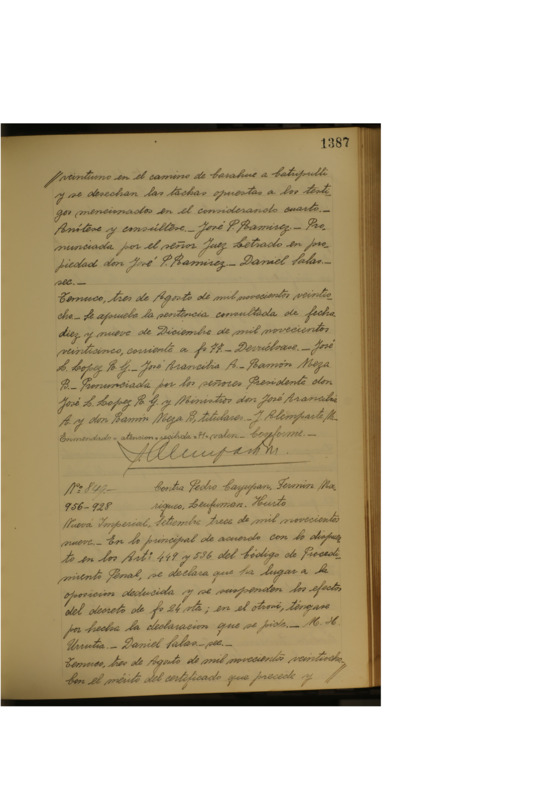 1387
veintiuno en el camino de Carahue a Catripulli
y se desechan las tachas opuestas a los testi
gos mencionados en el considerando cuarto.—
Anótese y consúltese.— José P. Ramirez — Pro
nunciada por el señor Juez Letrado en pro
piedad don José P. Ramirez — Daniel Salas —
sec.—
Temuco, tres de Agosto de mil novecientos veintio
cho.— Se aprueba la sentencia consultada de fecha
diez y nueve de Diciembre de mil novecientos
veinticinco, corriente a fs — Devuélvase.— José
L. Lopez R. G.— José Arancibia A.— Ramón Meza
B.— Pronunciada por los señores Presidente don
José L. Lopez R. G y Ministros don José Arancibia
A y don Ramón Meza B, titulares.— J Olimparte M.
Enmendado — valen — Conforme —
Nº 842 — Contra Pedro Cayupan, Fermin Ma
956-928 riqueo, Hurto
Nueva Imperial, Setiembre trece de mil novecientos
nueve.— En lo principal de acuerdo con lo dispues
to en los Artˢ 449 y 536 del Código de Procedi
miento Penal, se declara que ha lugar a la
oposicion deducida y se suspenden los efectos
del decreto de fs 26 vta; en el otrosí, téngase
por hecha la declaracion que se pide.— M. H.
Urrutia — Daniel Salas — sec —
Temuco, tres de Agosto de mil novecientos veintiocho
Con el mérito del certificado que precede y